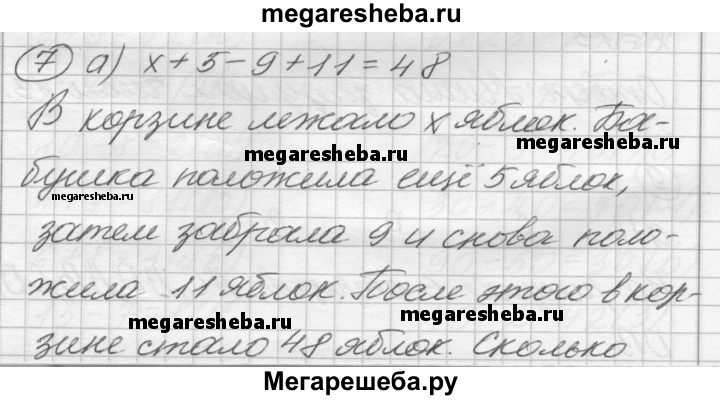 megaresheba.ru
7 а) x + 5 - 9 + 11 = 48
В корзине лежало x яблок. Ба-
megaresheba.ru
megaresheba.ru
бушка положила ещё 5 яблок,
megaresheba.ru
затем забрала 9 и снова поло-
жила 11 яблок. После этого в кор-
megaresheba.ru
megaresheba.ru
зине стало 48 яблок. Сколько
Мегарешеба.ру